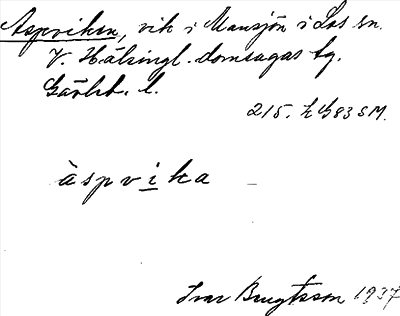 Aspviken, vik i Mansjön i Los sn.
V. Hälsingl. domsagas tg.
Gävleb. l.
215. h G83 SM.
àspvika
Ivar Bengtsson 1937